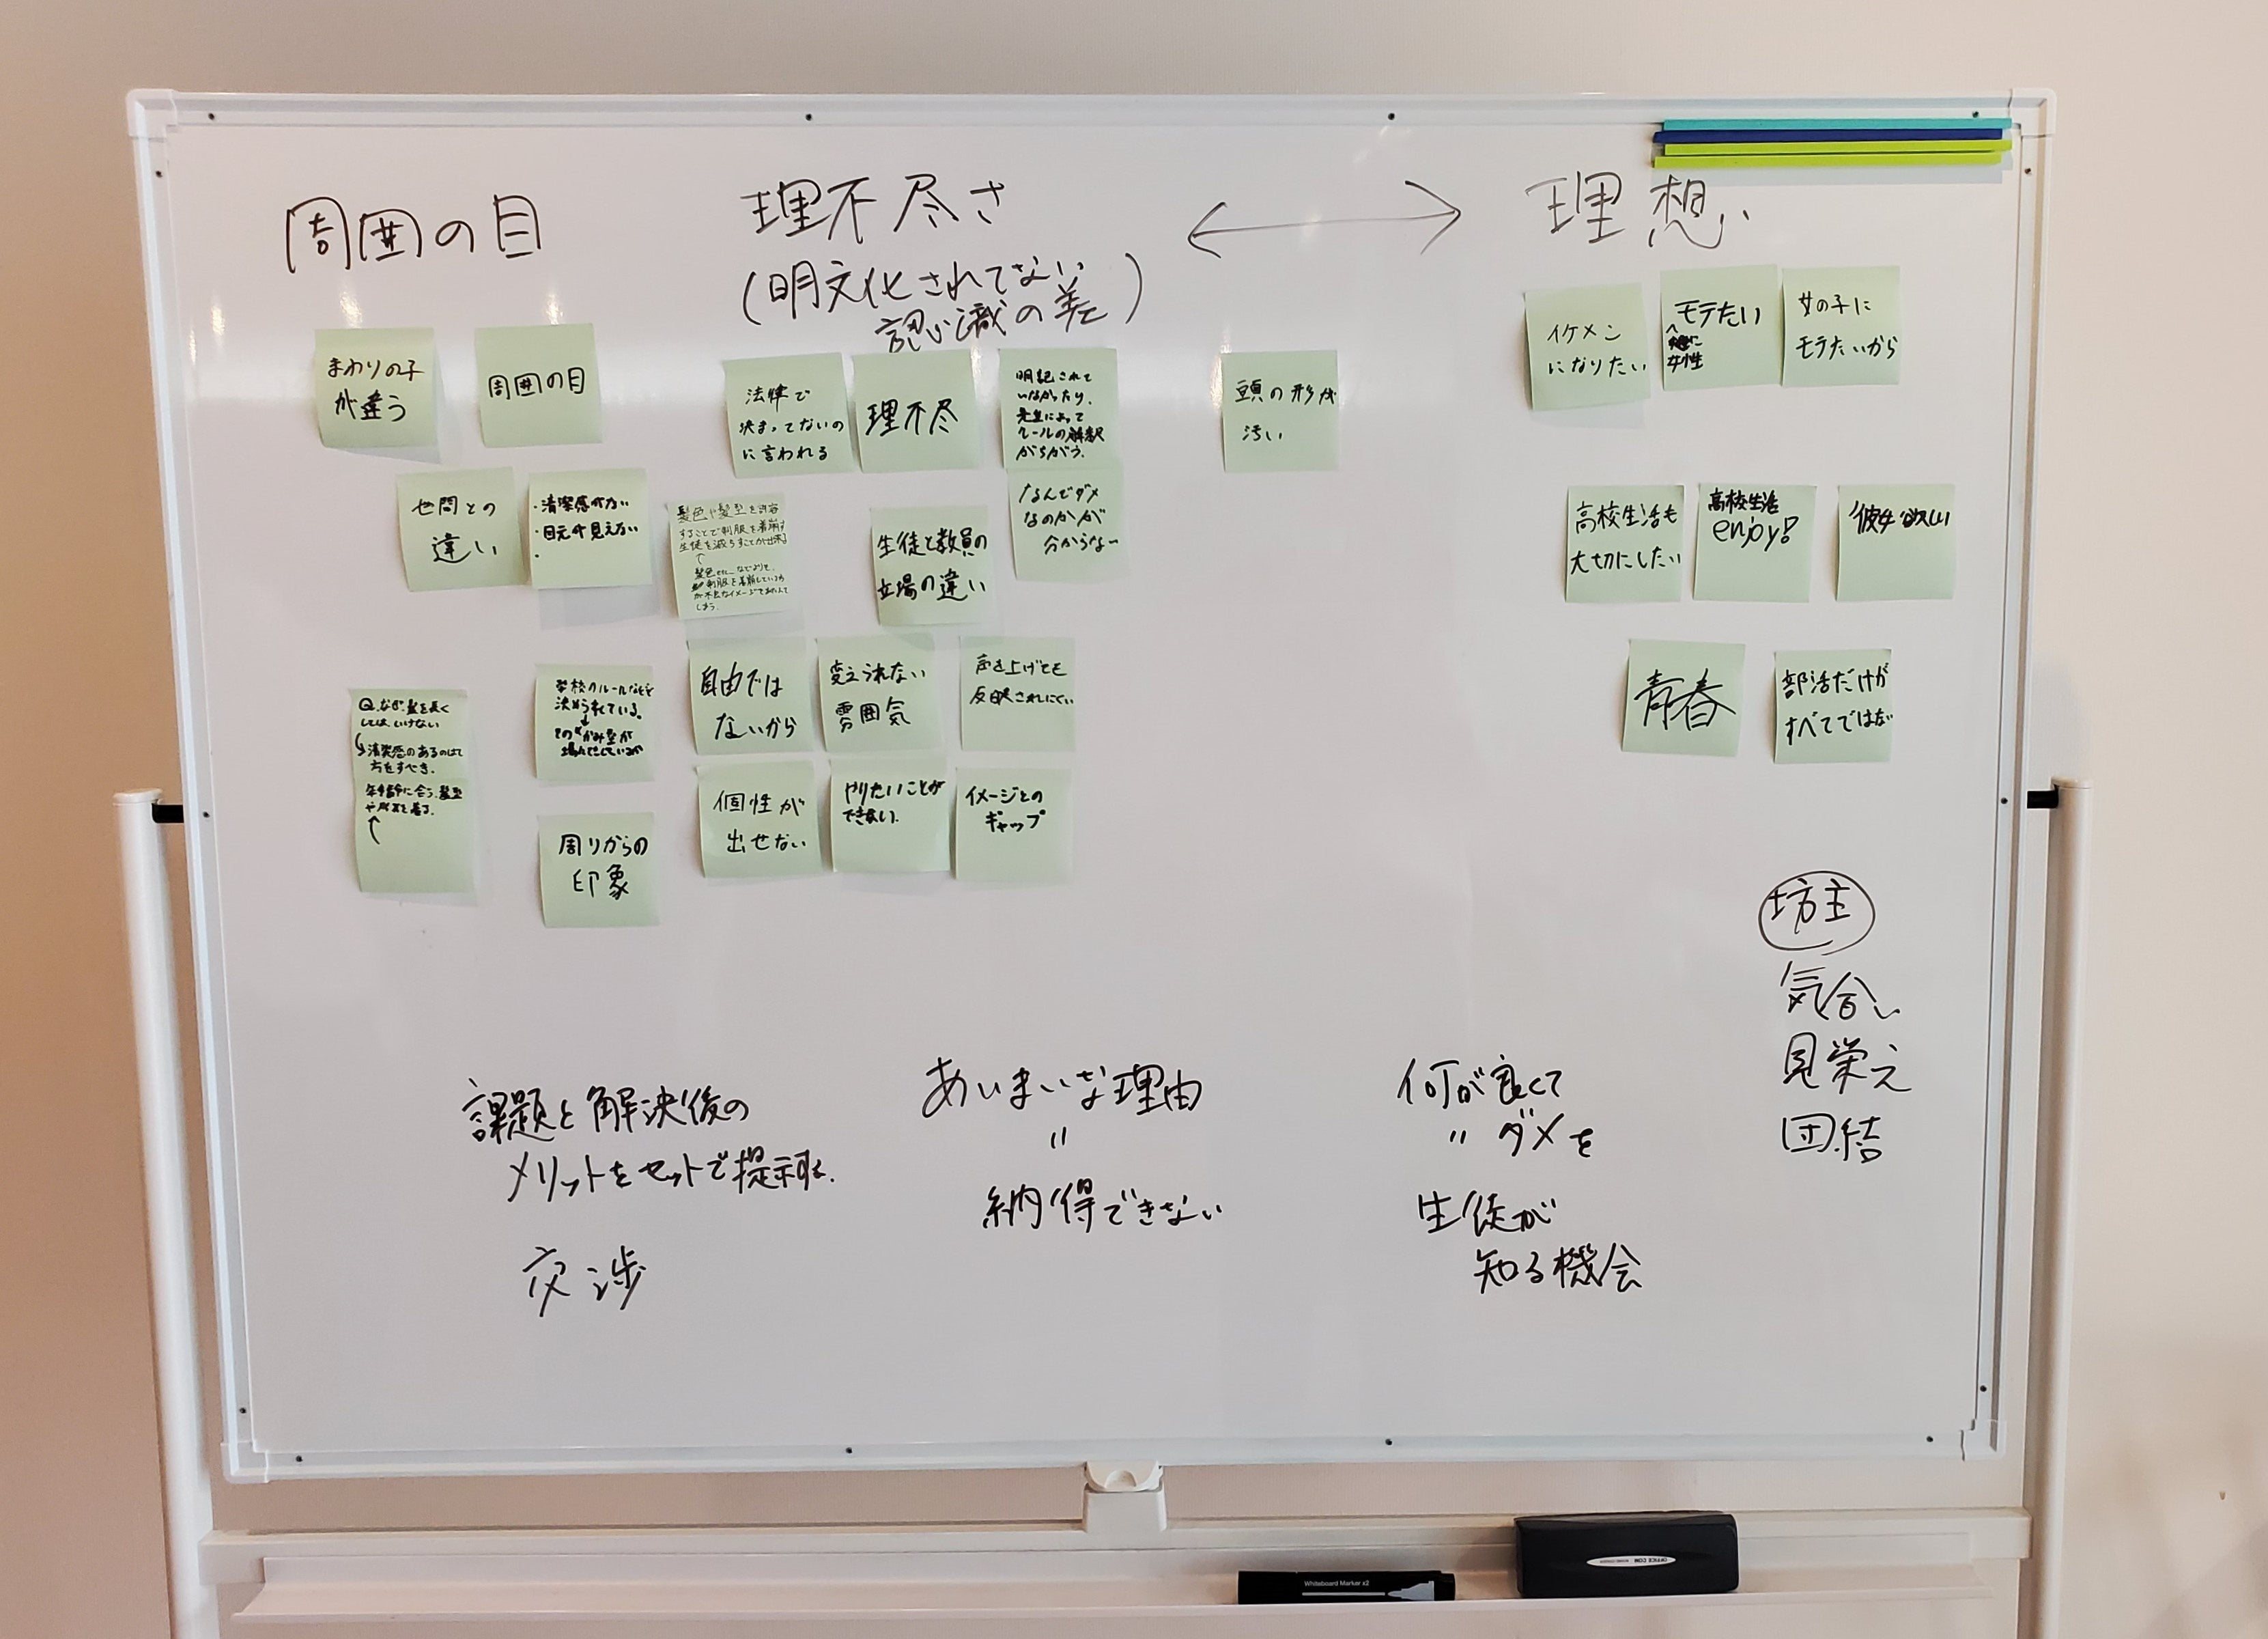 周囲の目
理不尽さ
(明文化されてない
認識の差)
理想
まわりの子
が違う
周囲の目
世間との
違い
・清潔感がない
・目元が見えない
・
法律で
決まってないの
に言われる
理不尽
明記されて
いなかったり、
先生によって
ルールの解釈
がちがう。
頭の形が
汚い
髪色や髪型を許容
することで制服を着崩す
生徒を減らすことが出来る
↑
制服を着崩しているの
が不良なイメージで
しまう。
生徒と教員の
立場の違い
なんでダメ
なのかが
分からない
Q.なぜ髪を長く
してはいけない
清潔感のあるのは
方をすべき.
年齢に合う髪型
や服を着る.
学校のルールなどを
決められている。
↓
周りからの
印象
自由では
ないから
変えられない
雰囲気
声を上げても
反映されにくい
個性が
出せない
やりたいことが
できない.
イメージとの
ギャップ
イケメン
になりたい
モテたい
女性
女の子に
モテたいから
高校生活も
大切にしたい
高校生活
enjoy!
彼女欲しい
青春
部活だけが
すべてではない
坊主
気合い
見栄え
団結
課題と解決後の
メリットをセットで提示する.
交渉
あいまいな理由
〃
納得できない
何が良くて
〃 ダメを
生徒が
知る機会
OFFICE COM
Whiteboard Marker x2